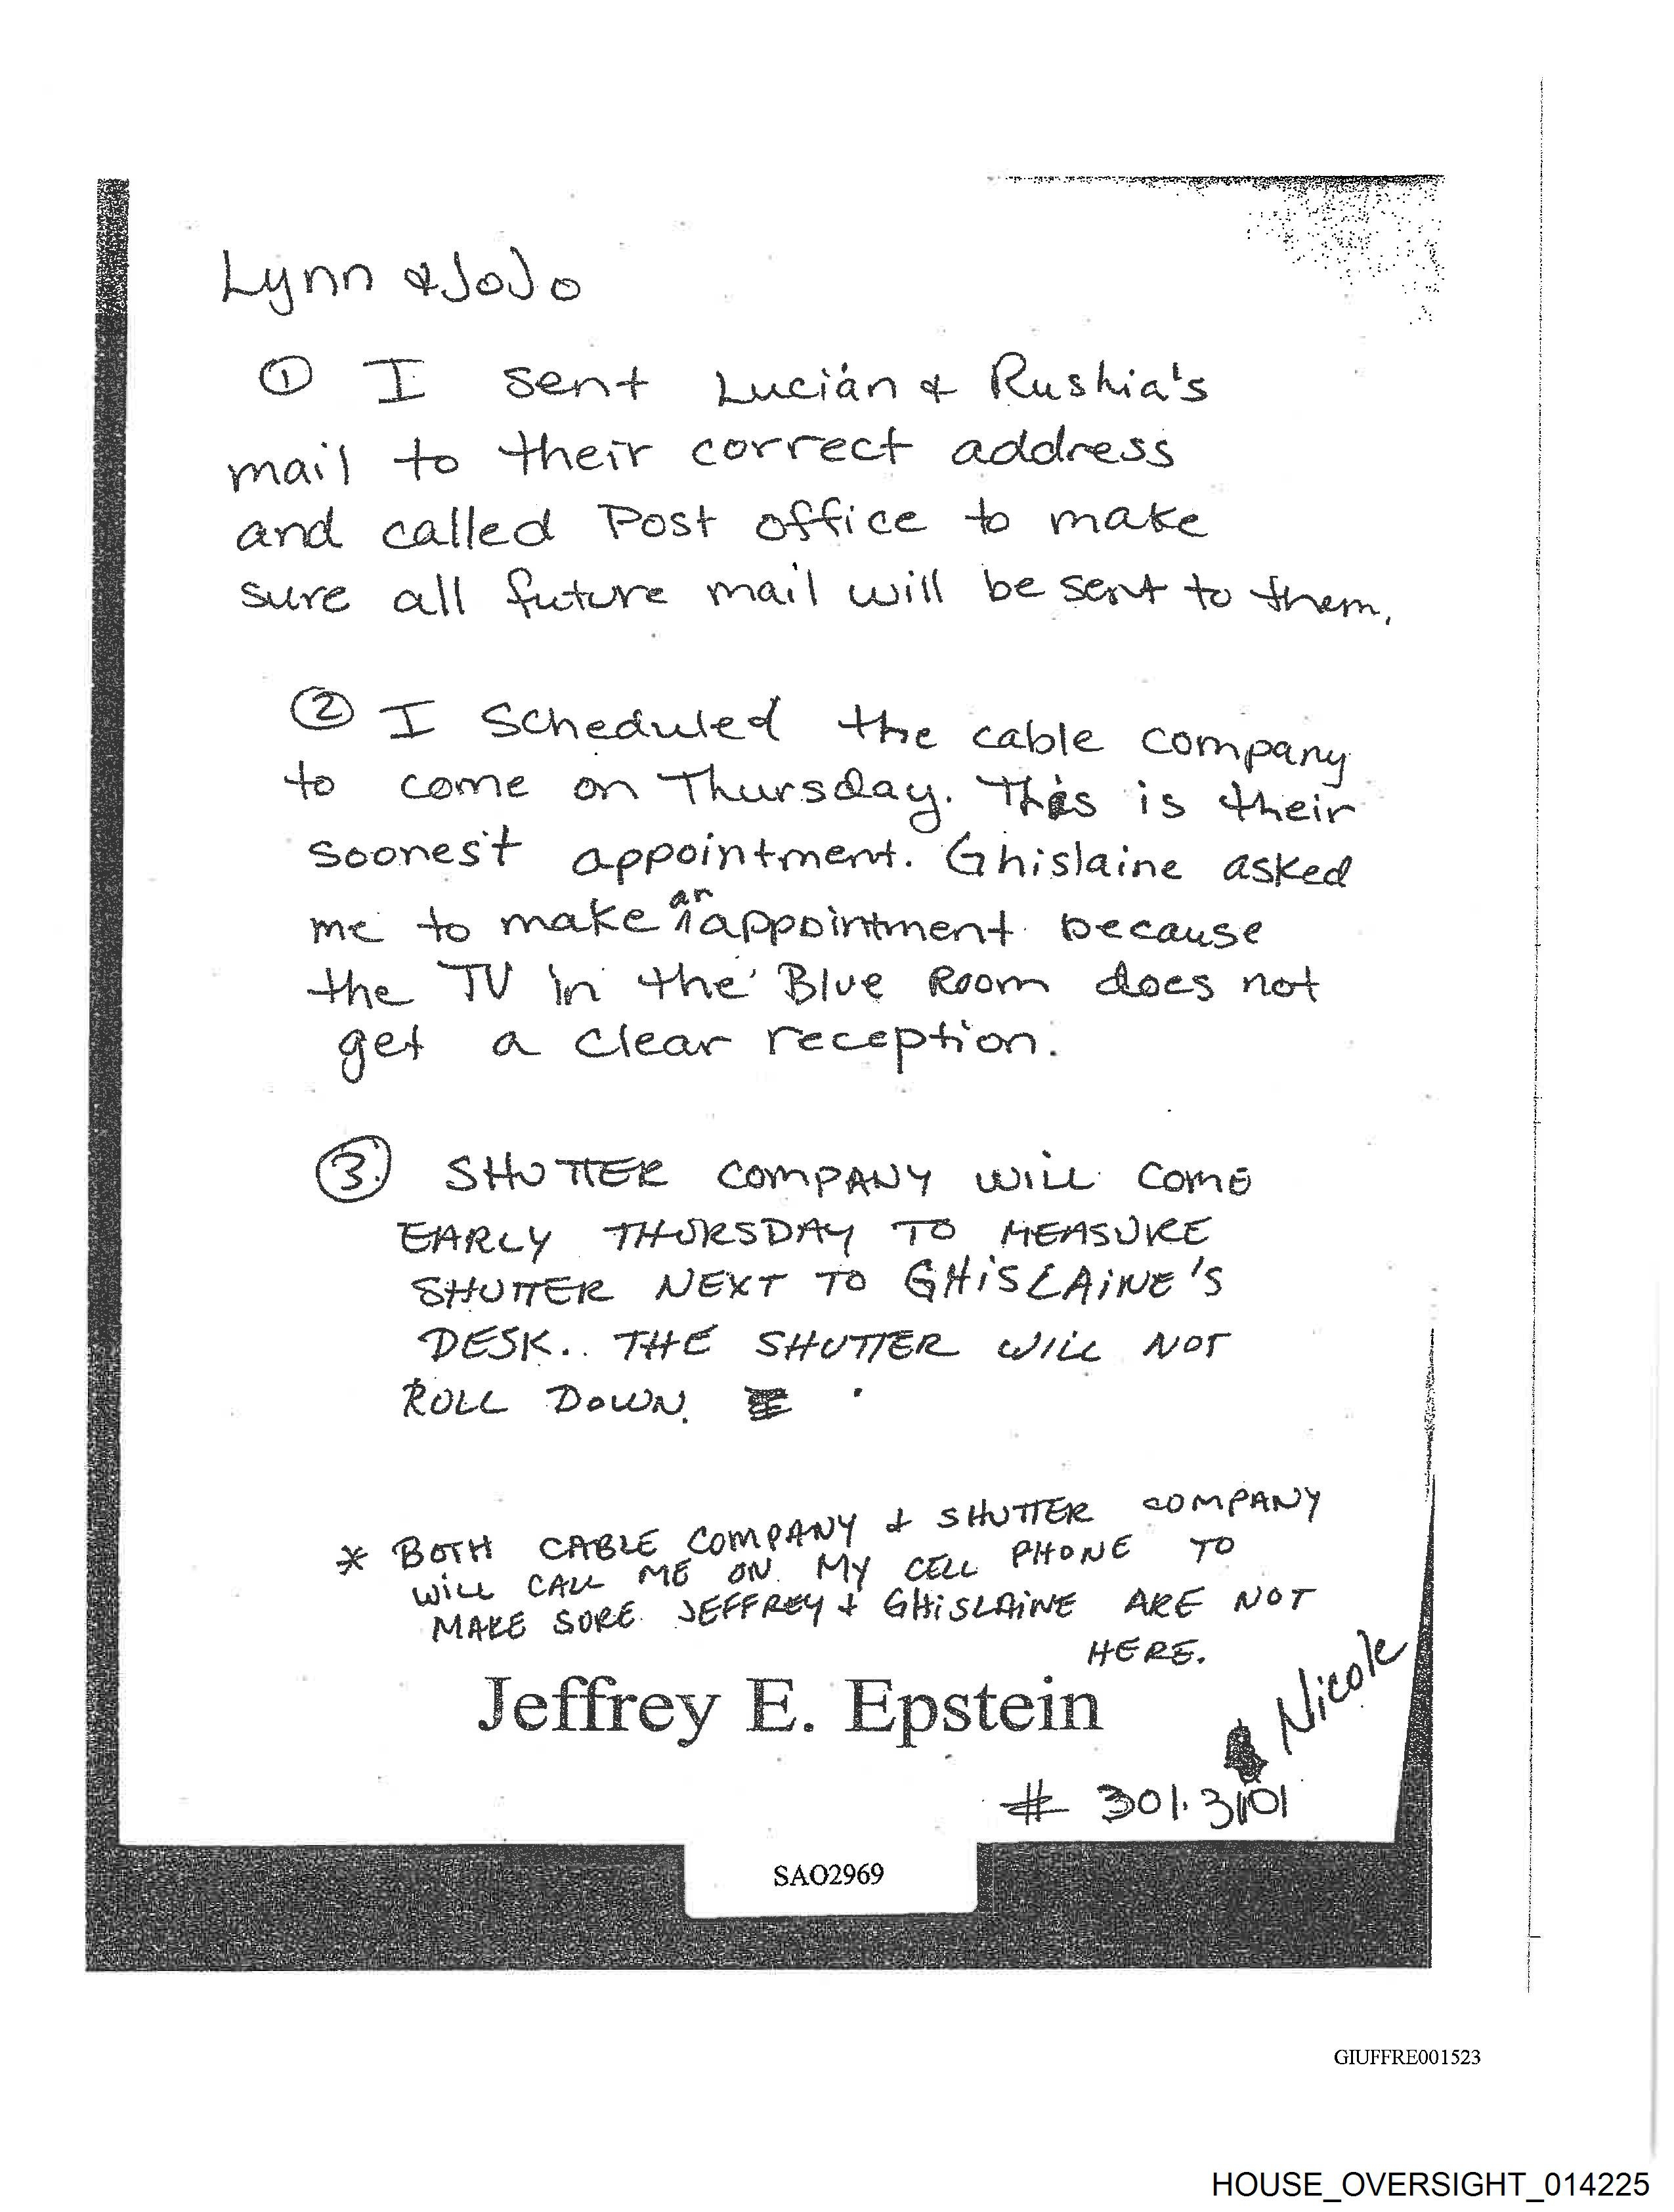 Lynn & JoJo
① I sent Lucian & Rushia's
mail to their correct address
and called Post office to make
sure all future mail will be sent to them.
② I scheduled the cable company
to come on Thursday. This is their
soonest appointment. Ghislaine asked
me to make an appointment because
the TV in the Blue Room does not
get a clear reception.
③. SHUTTER COMPANY WILL COME
EARLY THURSDAY TO MEASURE
SHUTTER NEXT TO GHISLAINE'S
DESK.. THE SHUTTER WILL NOT
ROLL DOWN.
* BOTH CABLE COMPANY & SHUTTER COMPANY
WILL CALL ME ON MY CELL PHONE TO
MAKE SURE JEFFREY & GHISLAINE ARE NOT
HERE.
Jeffrey E. Epstein
Nicole
# 301.3101
SAO2969
GIUFFRE001523
HOUSE_OVERSIGHT_014225